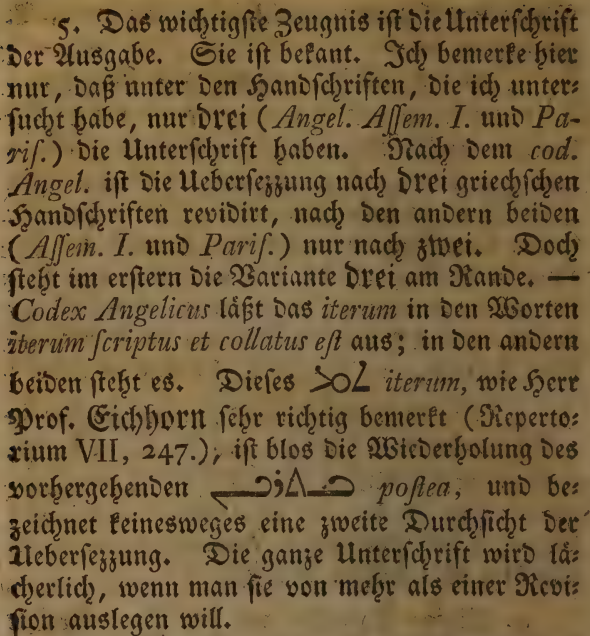 5. Das wichtigſte Zeugnis iſt die Unterſchrift
der Ausgabe. Sie iſt bekant. Ich bemerke hier
nur, daß unter den Handſchriften, die ich unter⸗
ſucht habe, nur drei (Angel. Aſſem. I. und Pa-
riſ.) die Unterſchrift haben. Nach dem cod.
Angel. iſt die Ueberſezzung nach drei griechſchen
Handſchriften revidirt, nach den andern beiden
(Aſſem. I. und Pariſ.) nur nach zwei. Doch
ſteht im erſtern die Variante drei am Rande. —
Codex Angelicus läßt das iterum in den Worten
iterum ſcriptus et collatus eſt aus; in den andern
beiden ſteht es. Dieſes iterum, wie Herr
Prof. Eichhorn ſehr richtig bemerkt (Reperto⸗
rium VII, 247.), iſt blos die Wiederholung des
vorhergehenden poſtea, und be⸗
zeichnet keinesweges eine zweite Durchſicht der
Ueberſezzung. Die ganze Unterſchrift wird lä⸗
cherlich, wenn man ſie von mehr als einer Revi⸗
ſion auslegen will.